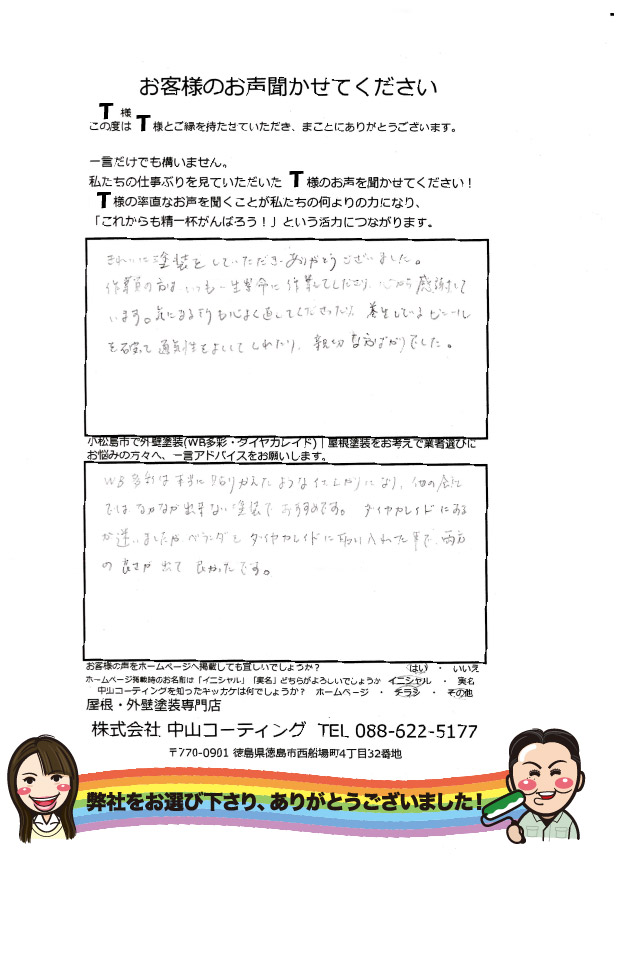 お客様のお声聞かせてください
T 様
この度は T 様とご縁を持たせていただき、まことにありがとうございます。
一言だけでも構いません。
私たちの仕事ぶりを見ていただいた T 様のお声を聞かせてください！
T 様の率直なお声を聞くことが私たちの何よりの力になり、
「これからも精一杯がんばろう！」という活力につながります。
きれいに塗装をしていただき、ありがとうございました。
作業員の方は いつも一生懸命に作業してくださり、心から感謝して
います。気になる所も心よく直してくださったり、養生しているビニール
を破って通気性をよくしてくれたり、親切な方ばかりでした。
小松島市で外壁塗装(WB多彩・ダイヤカレイド)｜屋根塗装をお考えで業者選びに
お悩みの方々へ、一言アドバイスをお願いします。
WB多彩は本当に貼りかえたような仕上がりになり、他の
ではなかなか出来ない塗装でおすすめです。ダイヤカレイドにする
か迷いましたが ベランダを ダイヤカレイドに取り入れた事で、両方
の良さが出て 良かったです。
お客様の声をホームページへ掲載しても宜しいでしょうか？ はい ・ いいえ
ホームページ掲載時のお名前は「イニシャル」「実名」どちらがよろしいでしょうか イニシャル ・ 実名
中山コーティングを知ったキッカケは何でしょうか？ ホームページ ・ チラシ ・ その他
屋根・外壁塗装専門店
株式会社 中山コーティング TEL 088-622-5177
〒770-0901 徳島県徳島市西船場町4丁目32番地
弊社をお選び下さり、ありがとうございました！